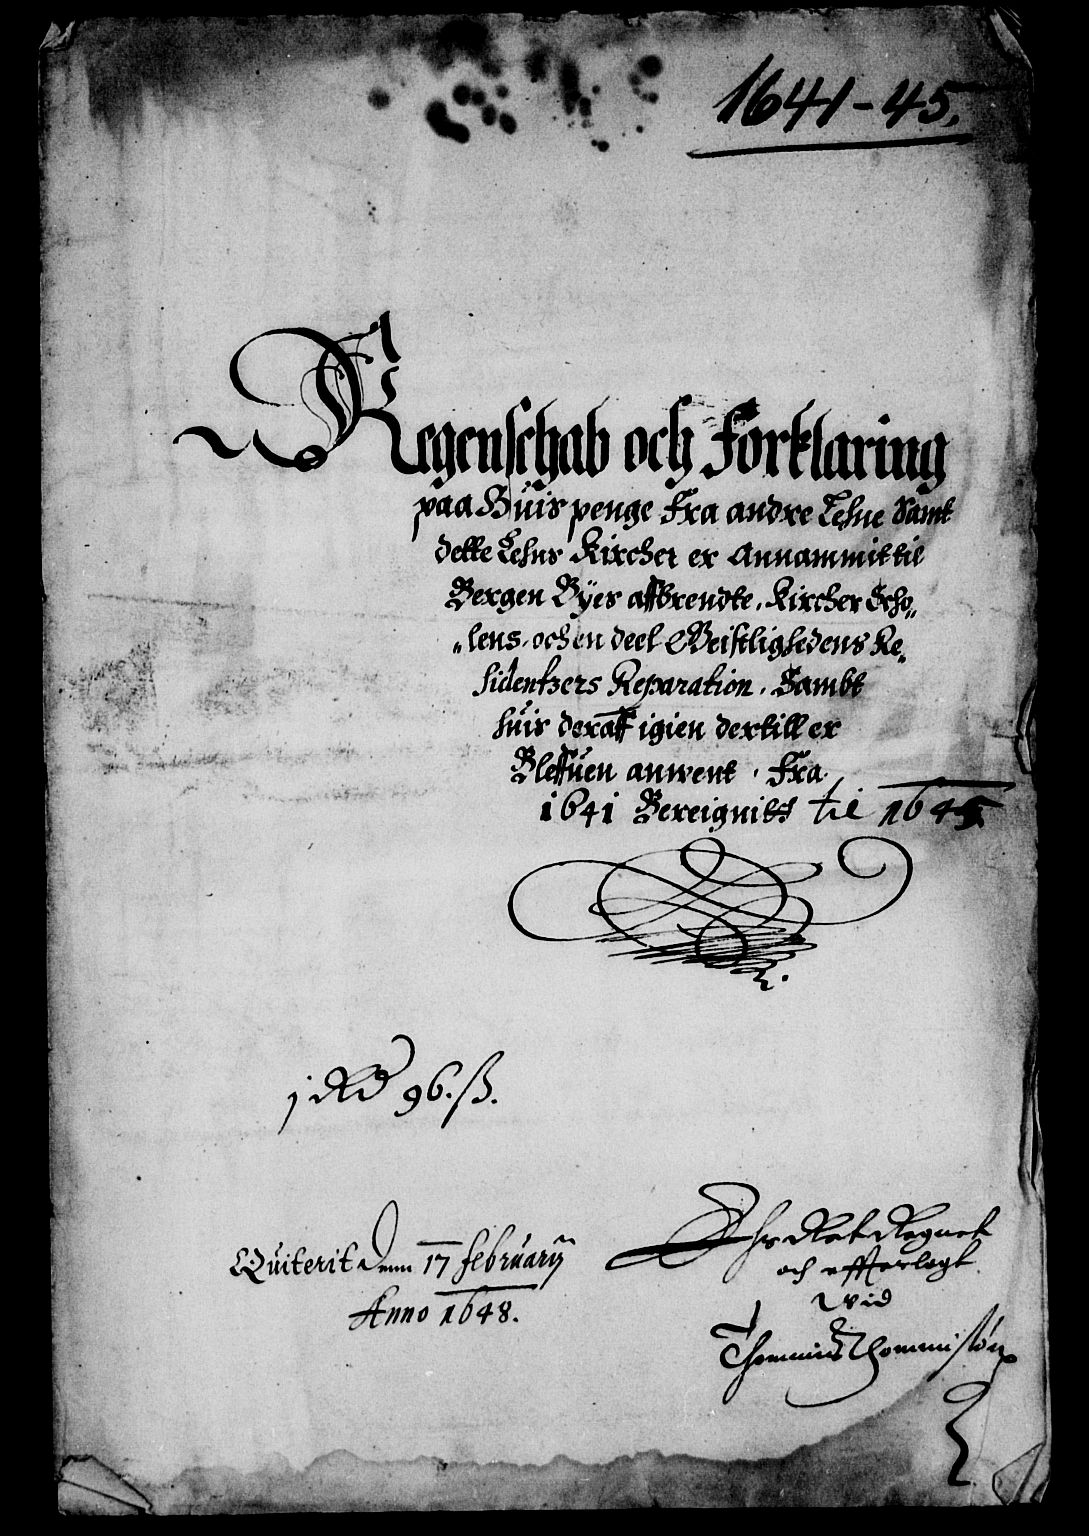 1641-45.
Regenschab och Forklaring
paa Huis penge Fra andre Lehne Samt
dette Lehns Kircher er Annammit til
Bergen Byes affbrendte, Kircher Scho„
„lens, och en deel Geistlighedens Re„
sidentzers Reparation. Sambt
huis deraff igien dertill er
Bleffuen anwent. Fra
1641 Bereignitt til 1645
j Rd 96. ß.
Quiterit Denn 17 februarij
Anno 1648.
Ret Regnet
och effterlagt
wid